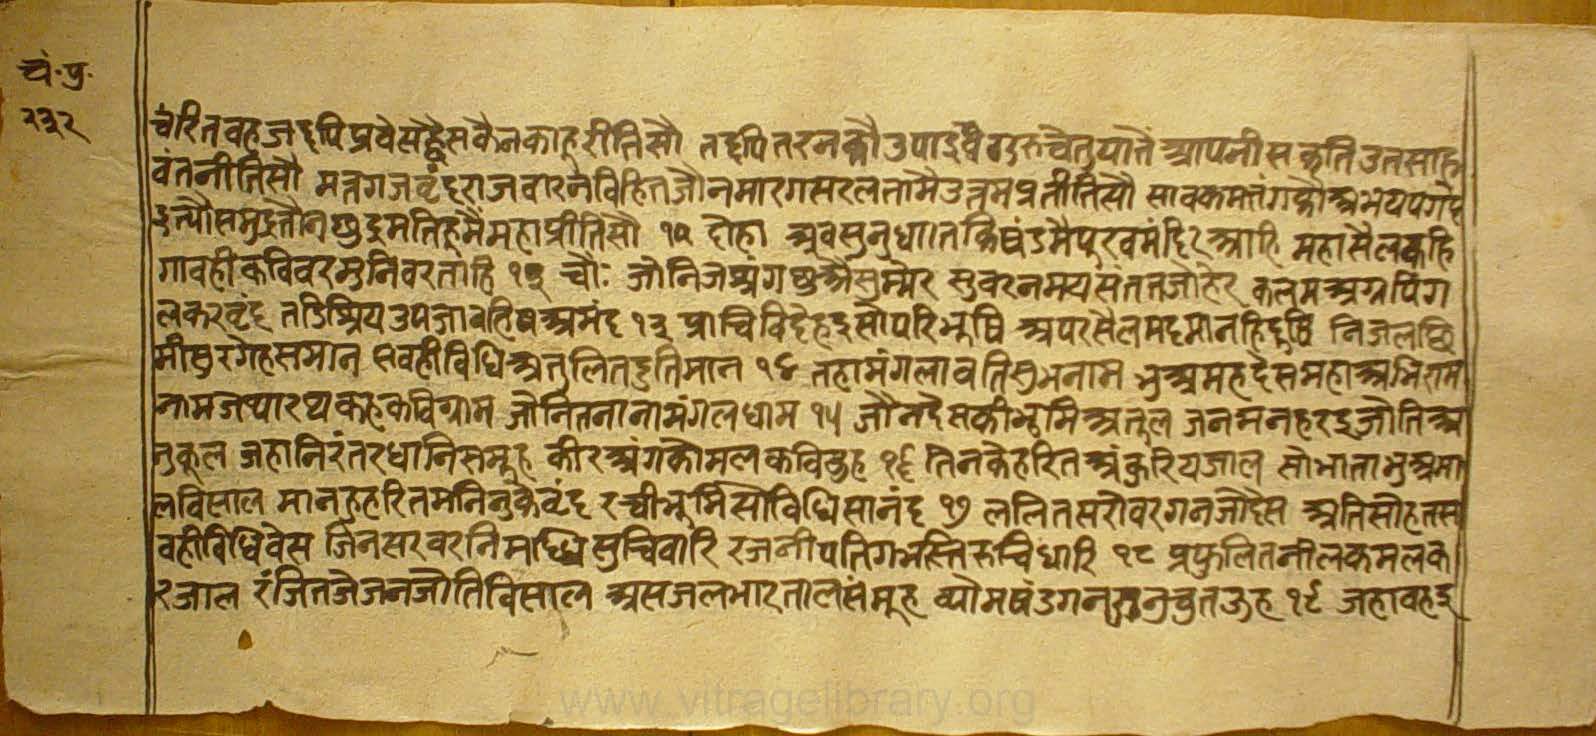 चं·प्र·
२३२
चरितवहजद्दपिप्रवेसह्वैसकैनकाहूरीतिसौ तद्दपितरनकौउपाइ आपनीसकृतिउतसाह
वंतनीतिसौ मत्तगजवृंदराजवारनविहितजौनमारगसरलतामैउत्तमप्रतीतिसौ सावकमतंगकौ
मतिहूमैमहाप्रीतिसौ १२ दोहा अवसुनुधातकिषंडमैपूरवमंदिरआहि महासैलकहि
गावहीकविवरमुनिवरताहि १३ चौ॰ जोनिजअंग सुवरनमयसंततजोहेर कलमअग्रपिंग
लकरवृंद तडिश्रियउपजावहि अमंद १३ प्राचिविदेहइसोपरिभूषि अपरसैलमदमानहिदूषि निजलछि
मीसुरगेहसमान सवहीविधिअतुलितदुतिमान १४ तहामंगलावतिसुभनाम भुअमहदेसमहाअभिराम
नामजथारथकहकविग्राम जौनितनानामंगलधाम १५ जौनदेसकीभूमिअतूल जनमनहरइजोतिअ
नुकूल जहानिरंतरधानिसमूह कीरअंगकोमलकविवूह १६ तिनकेहरितअंकुरियजाल सोभाताभुअमा
लविसाल मानहुहरितमनिनुकेवृंद रचीभूमिसोविधिसानंद १७ ललितसरोवरगनजोदेस अतिसोहतस
वहीविधिवेस जिनसरवरनिमद्धिसुचिवारि रजनीपतिगभस्तिरुचिधारि १८ प्रफुलितनीलकमलक
रजाल रंजितजेजनजोतिविसाल असजलभारतालसंमूह व्योमषंडगन १९ जहावहइ
www.vitragelibrary.org